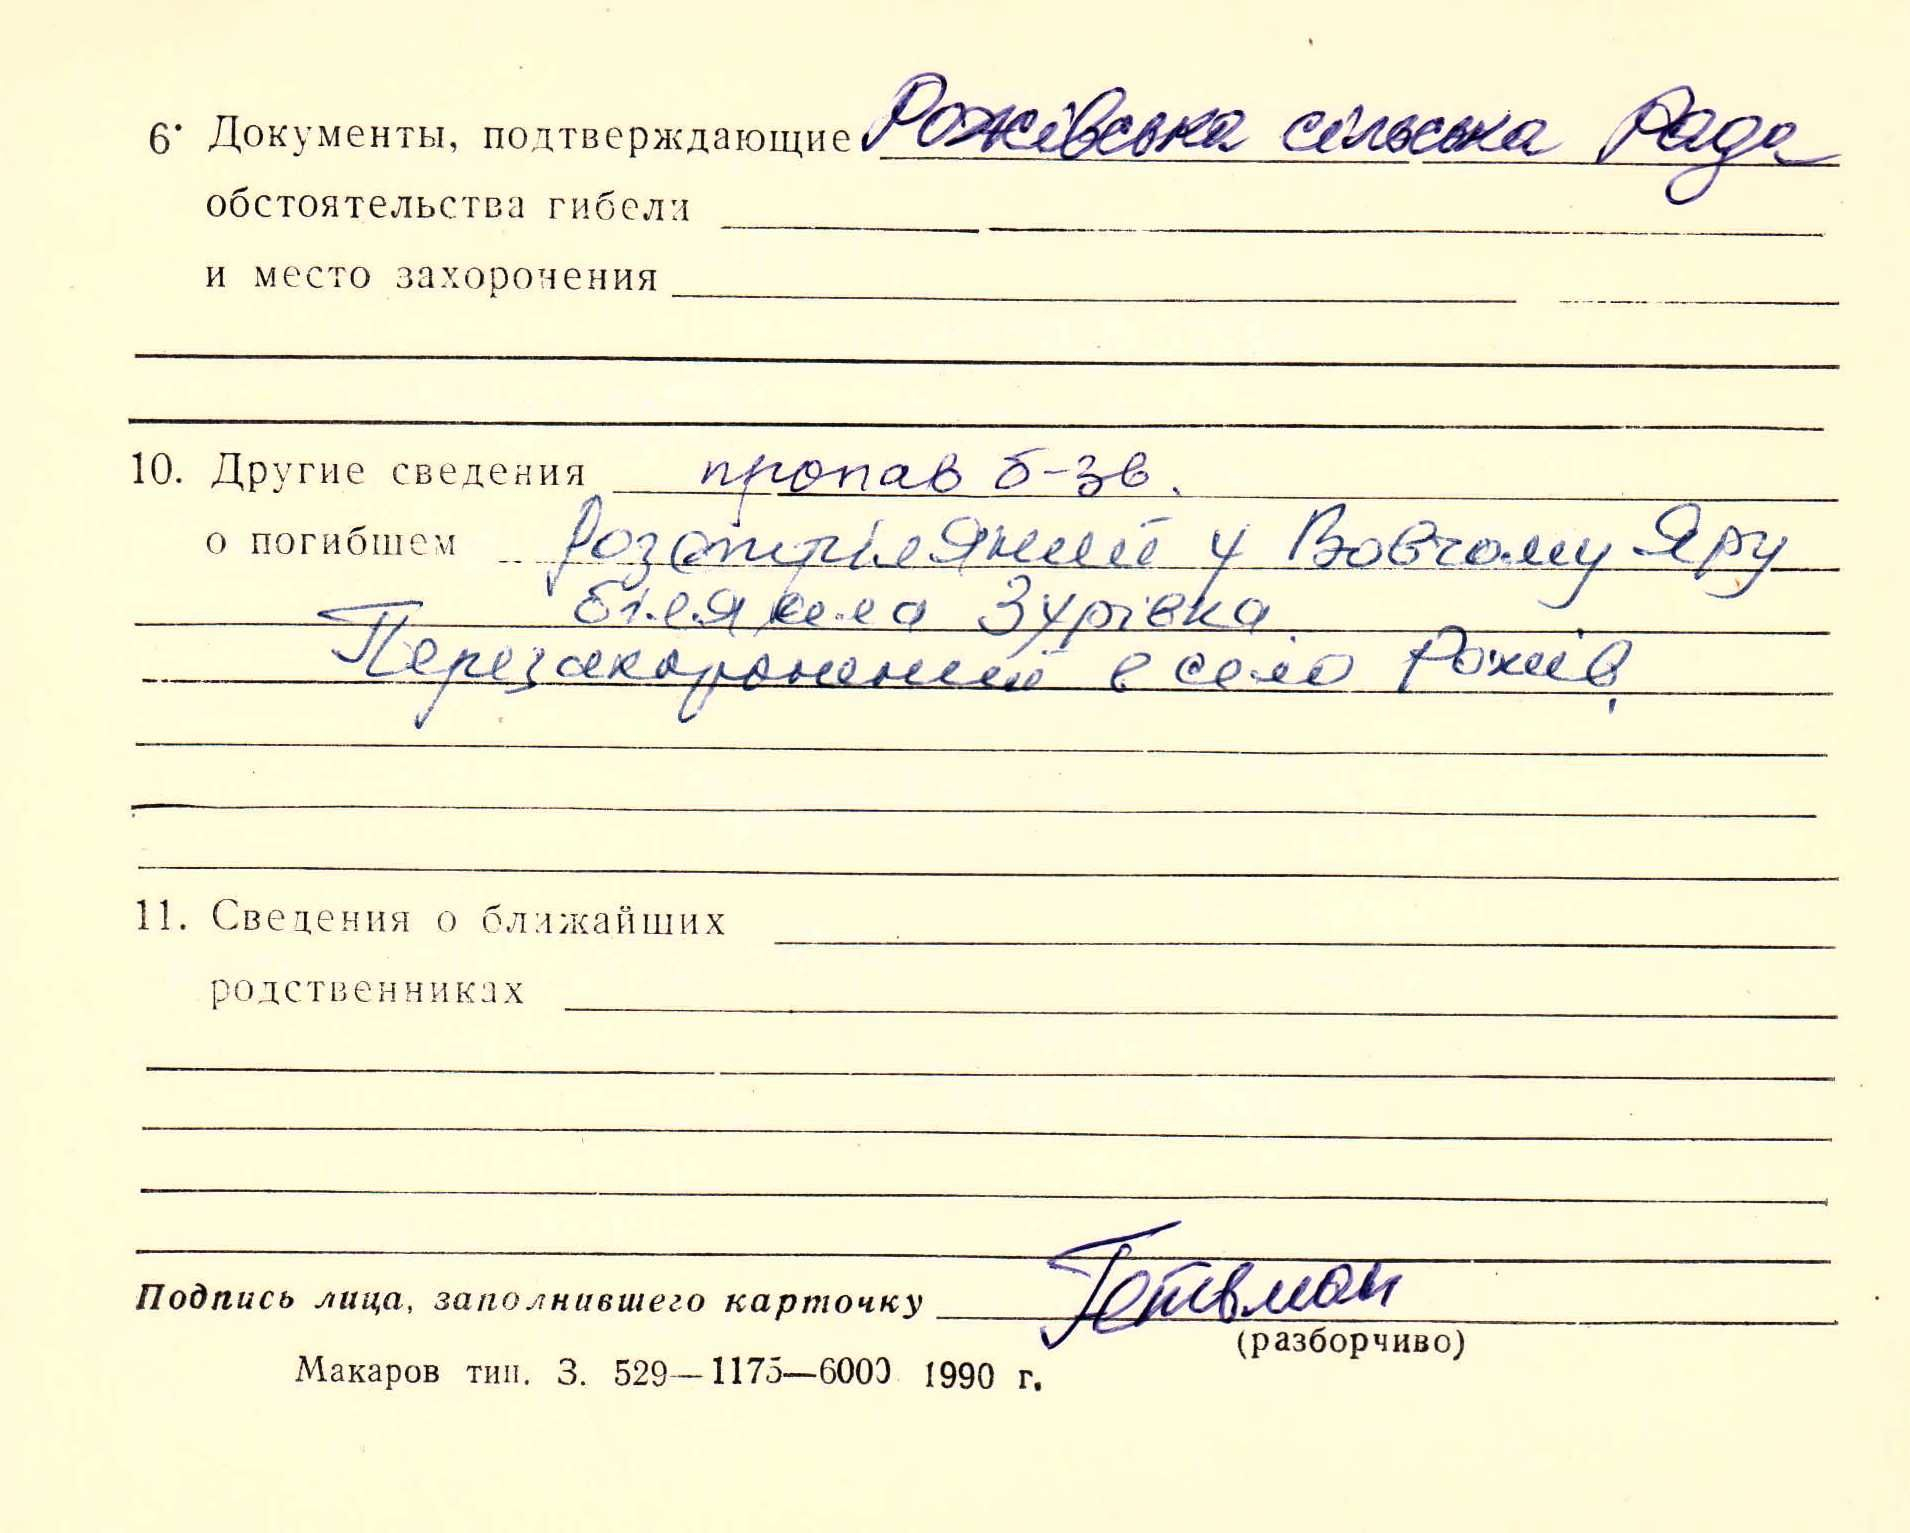 6. Документы, подтверждающие Рожівська сільська Рада
обстоятельства гибели
и место захоронения
10. Другие сведения пропав б-зв.
о погибшем Розстріляний у Вовчому Яру
біля села Зурівка.
Перезахоронений в село Рожів,
11. Сведения о ближайших
родственниках
Подпись лица, заполнившего карточку Гетьман
(разборчиво)
Макаров тип. З. 529—1175—6000 1990 г.